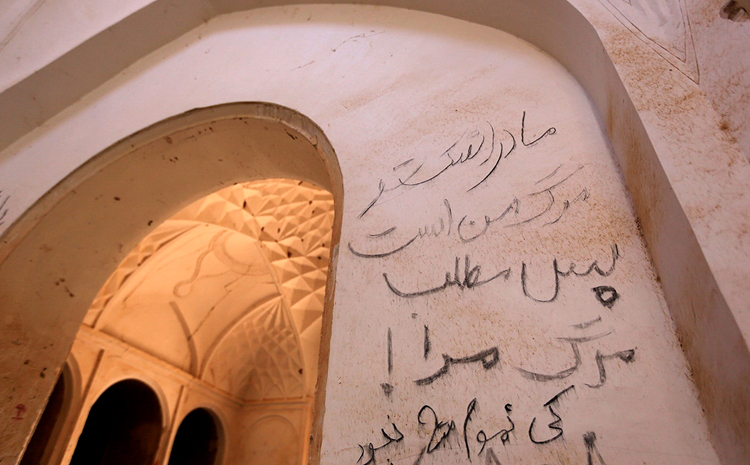 مادر اشک تو
مرگ من است
پس مطلب
مرگ مرا!
کی